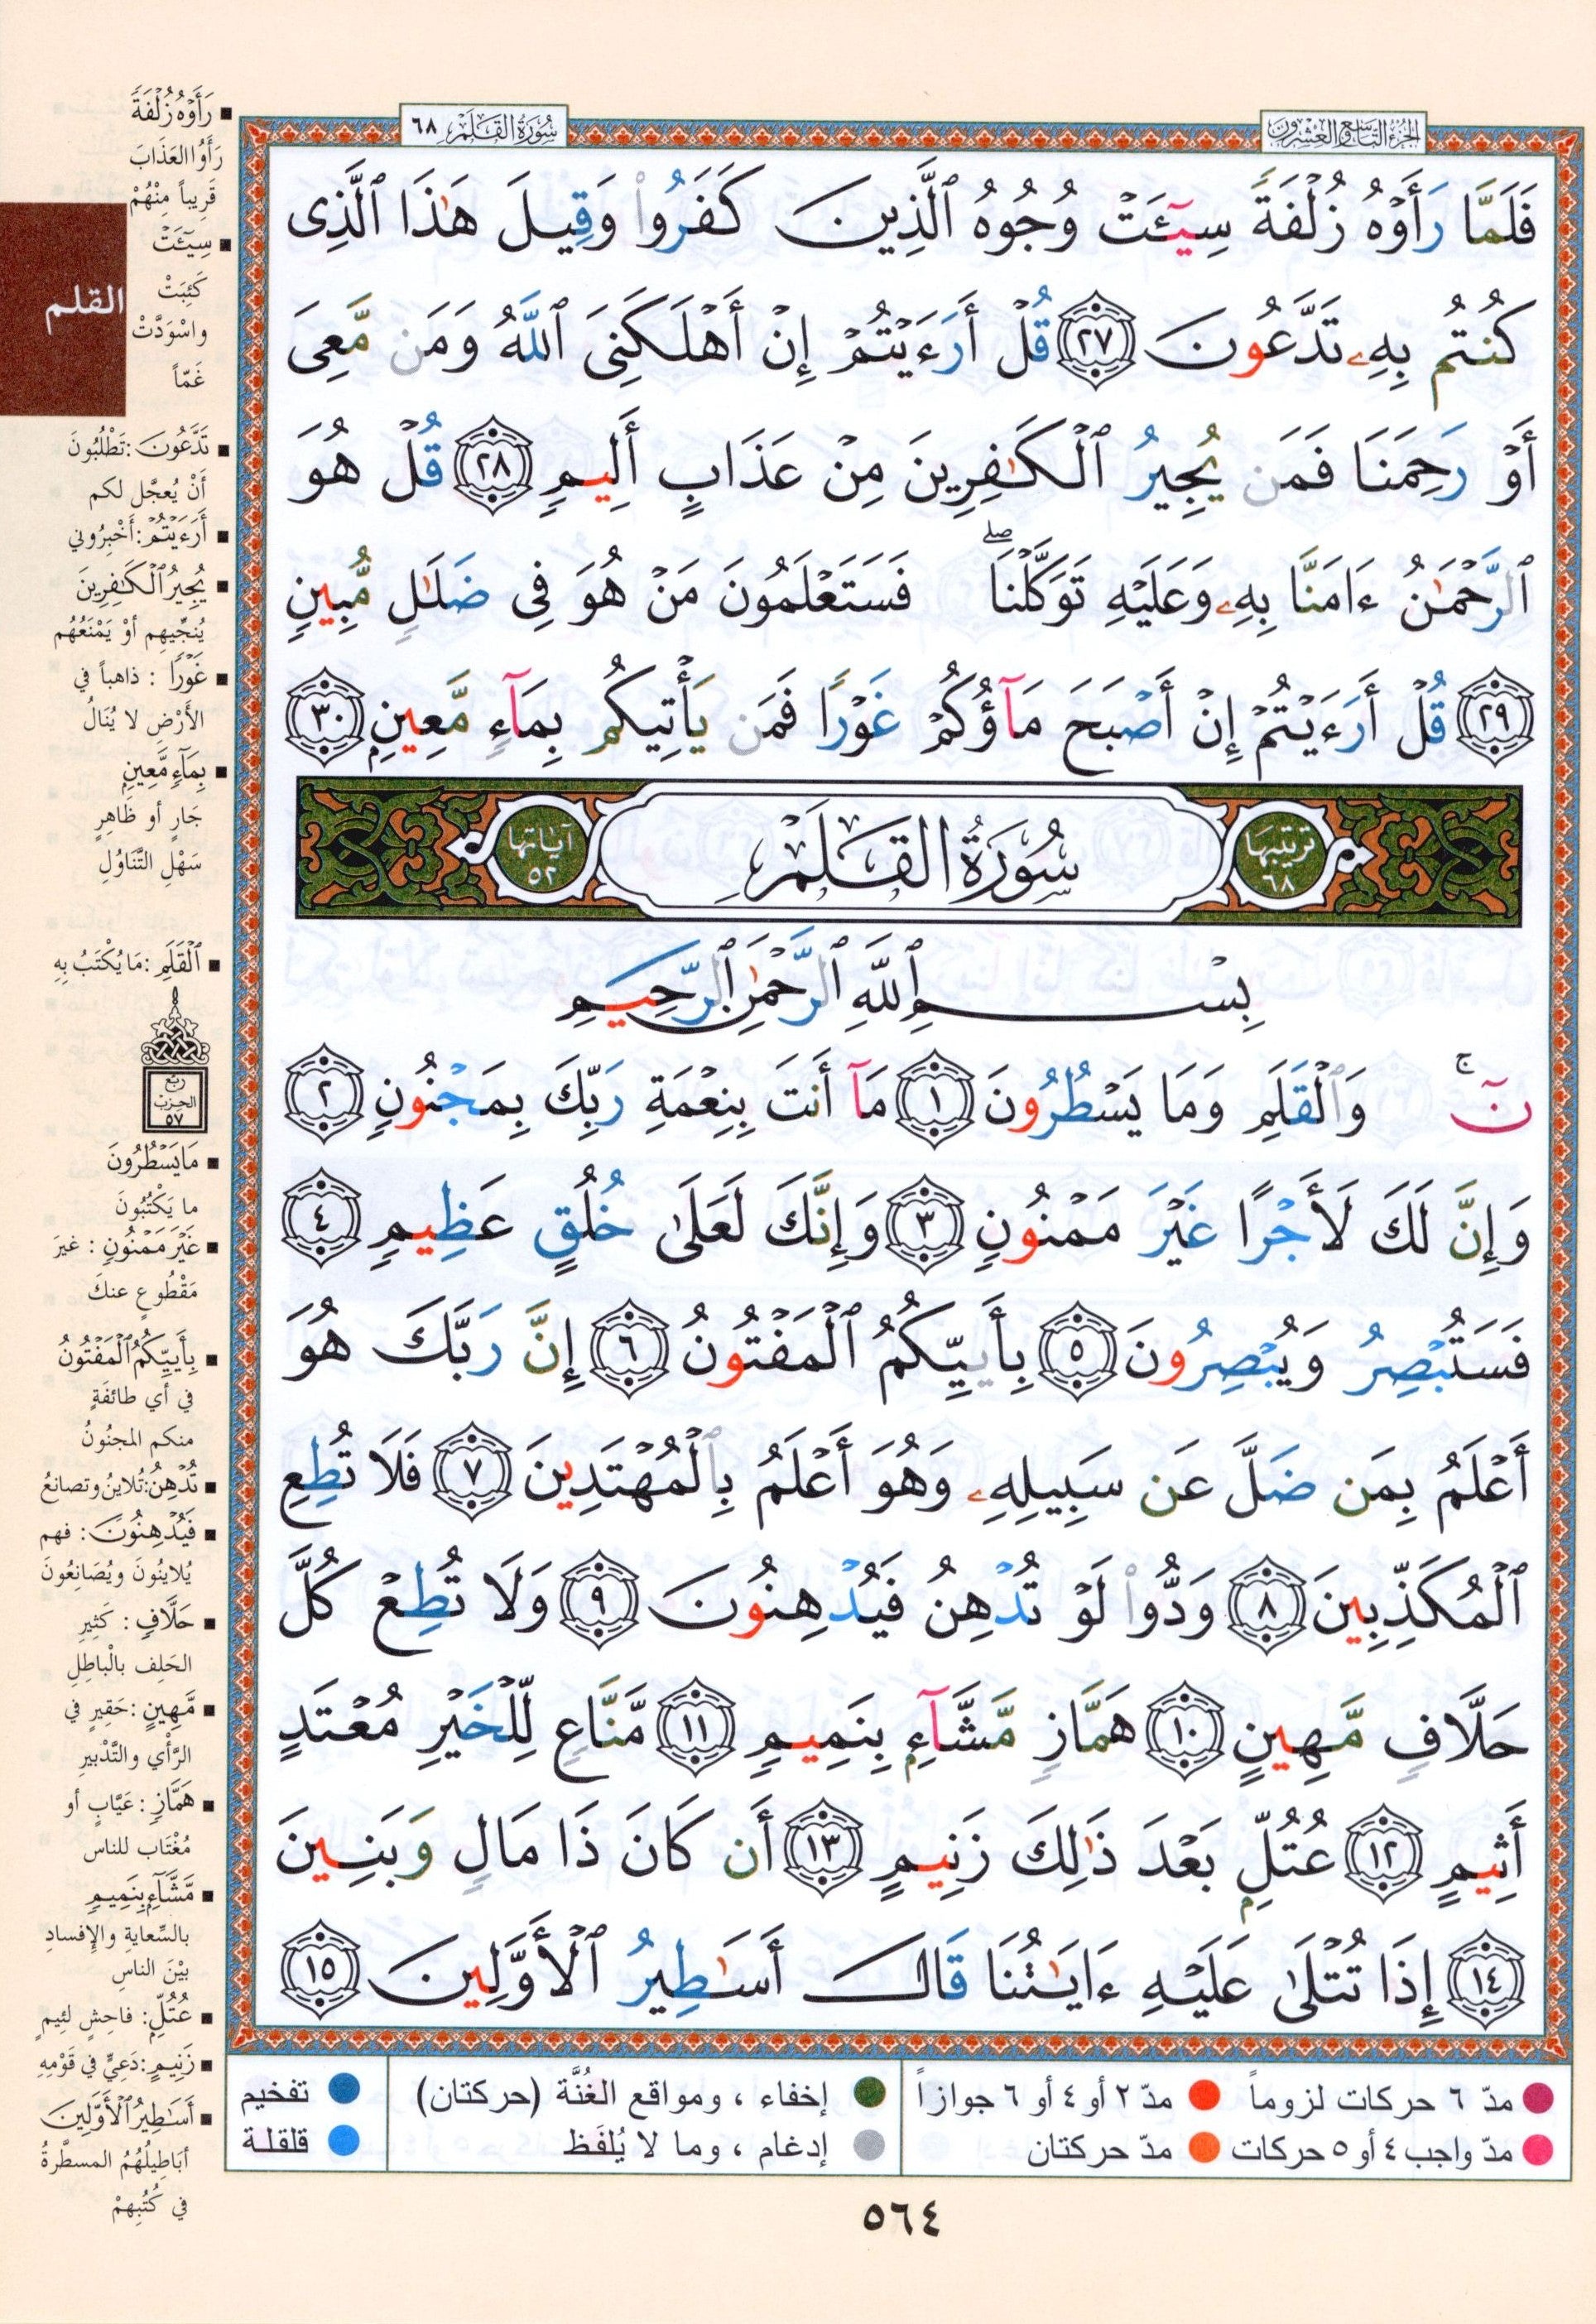 الجزء التاسع والعشرون
سُورَةُ القَلَمِ ٦٨
فَلَمَّا رَأَوْهُ زُلْفَةً سِيٓـَٔتْ وُجُوهُ ٱلَّذِينَ كَفَرُوا۟ وَقِيلَ هَٰذَا ٱلَّذِى
كُنتُم بِهِۦ تَدَّعُونَ ٢٧ قُلْ أَرَءَيْتُمْ إِنْ أَهْلَكَنِىَ ٱللَّهُ وَمَن مَّعِىَ
أَوْ رَحِمَنَا فَمَن يُجِيرُ ٱلْكَٰفِرِينَ مِنْ عَذَابٍ أَلِيمٍ ٢٨ قُلْ هُوَ
ٱلرَّحْمَٰنُ ءَامَنَّا بِهِۦ وَعَلَيْهِ تَوَكَّلْنَا ۖ فَسَتَعْلَمُونَ مَنْ هُوَ فِى ضَلَٰلٍ مُّبِينٍ
٢٩ قُلْ أَرَءَيْتُمْ إِنْ أَصْبَحَ مَآؤُكُمْ غَوْرًا فَمَن يَأْتِيكُم بِمَآءٍ مَّعِينٍۭ ٣٠
ترتيبها ٦٨
سُورَةُ القَلَمِ
آياتها ٥٢
بِسْمِ ٱللَّهِ ٱلرَّحْمَٰنِ ٱلرَّحِيمِ
نٓ ۚ وَٱلْقَلَمِ وَمَا يَسْطُرُونَ ١ مَآ أَنتَ بِنِعْمَةِ رَبِّكَ بِمَجْنُونٍ ٢
وَإِنَّ لَكَ لَأَجْرًا غَيْرَ مَمْنُونٍ ٣ وَإِنَّكَ لَعَلَىٰ خُلُقٍ عَظِيمٍ ٤
فَسَتُبْصِرُ وَيُبْصِرُونَ ٥ بِأَييِّكُمُ ٱلْمَفْتُونُ ٦ إِنَّ رَبَّكَ هُوَ
أَعْلَمُ بِمَن ضَلَّ عَن سَبِيلِهِۦ وَهُوَ أَعْلَمُ بِٱلْمُهْتَدِينَ ٧ فَلَا تُطِعِ
ٱلْمُكَذِّبِينَ ٨ وَدُّوا۟ لَوْ تُدْهِنُ فَيُدْهِنُونَ ٩ وَلَا تُطِعْ كُلَّ
حَلَّافٍ مَّهِينٍ ١٠ هَمَّازٍ مَّشَّآءٍۭ بِنَمِيمٍ ١١ مَّنَّاعٍ لِّلْخَيْرِ مُعْتَدٍ
أَثِيمٍ ١٢ عُتُلٍّۭ بَعْدَ ذَٰلِكَ زَنِيمٍ ١٣ أَن كَانَ ذَا مَالٍ وَبَنِينَ
١٤ إِذَا تُتْلَىٰ عَلَيْهِ ءَايَٰتُنَا قَالَ أَسَٰطِيرُ ٱلْأَوَّلِينَ ١٥
القلم
رَأَوْهُ زُلْفَةً
رَأَوُا العَذَابَ
قَرِيباً مِنْهُمْ
سِيٓـَٔتْ
كَئِبَتْ
واسْوَدَّتْ
غَمّاً
تَدَّعُونَ : تَطْلُبُونَ
أَنْ يُعجَّل لكم
أَرَءَيْتُمْ : أَخْبِرُوني
يُجِيرُ ٱلْكَٰفِرِينَ
يُنجِّيهِم أوْ يَمْنَعُهُم
غَوْرًا : ذاهباً في
الأَرْضِ لا يُنَالُ
بِمَآءٍ مَّعِينٍ
جَارٍ أو ظَاهِرٍ
سَهْلِ التَّنَاوُلِ
ٱلْقَلَمِ : مَا يُكْتَبُ بِهِ
ربع
الحزب
٥٧
مَا يَسْطُرُونَ
ما يَكْتُبُونَ
غَيْرَ مَمْنُونٍ : غيرَ
مَقْطُوعٍ عنكَ
بِأَييِّكُمُ ٱلْمَفْتُونُ
في أي طائفَةٍ
منكم المجنُونُ
تُدْهِنُ : تُلاينُ وتصانعُ
فَيُدْهِنُونَ : فهم
يُلاينُونَ ويُصَانِعُونَ
حَلَّافٍ : كَثِيرِ
الحَلِف بالْباطِلِ
مَّهِينٍ : حَقِيرٍ في
الرَّأْي والتَّدْبيرِ
هَمَّازٍ : عَيَّابٍ أو
مُغْتَاب للناس
مَّشَّآءٍۭ بِنَمِيمٍ
بالسِّعايةِ والإفسادِ
بيْنَ الناسِ
عُتُلٍّۭ : فاحِشٍ لئِيمٍ
زَنِيمٍ : دَعِيٍّ في قَوْمِهِ
أَسَٰطِيرُ ٱلْأَوَّلِينَ
أبَاطِيلُهُمُ المسطَّرةُ
في كُتُبِهِمْ
مدّ ٦ حركات لزوماً مدّ ٢ أو ٤ أو ٦ جوازاً
مدّ واجب ٤ أو ٥ حركات مدّ حركتان
إخفاء ، ومواقع الغُنَّة (حركتان)
إدغام ، وما لا يُلفَظ
تفخيم
قلقلة
٥٦٤